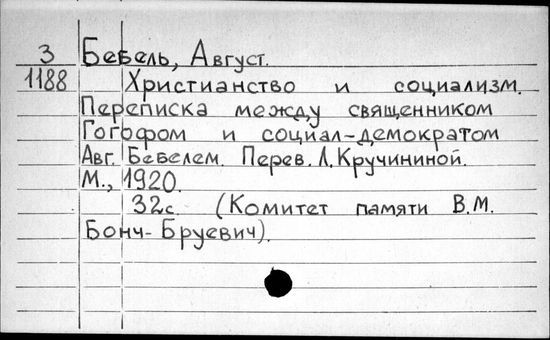 З Бебель, Август.
1188 Христианство и социализм.
Переписка между священником
Гогофом и социал-демократом
Авг. Бебелем. Перев. Л. Кручининой.
М., 1920.
32с. (Комитет памяти В.М.
Бонч-Бруевич).